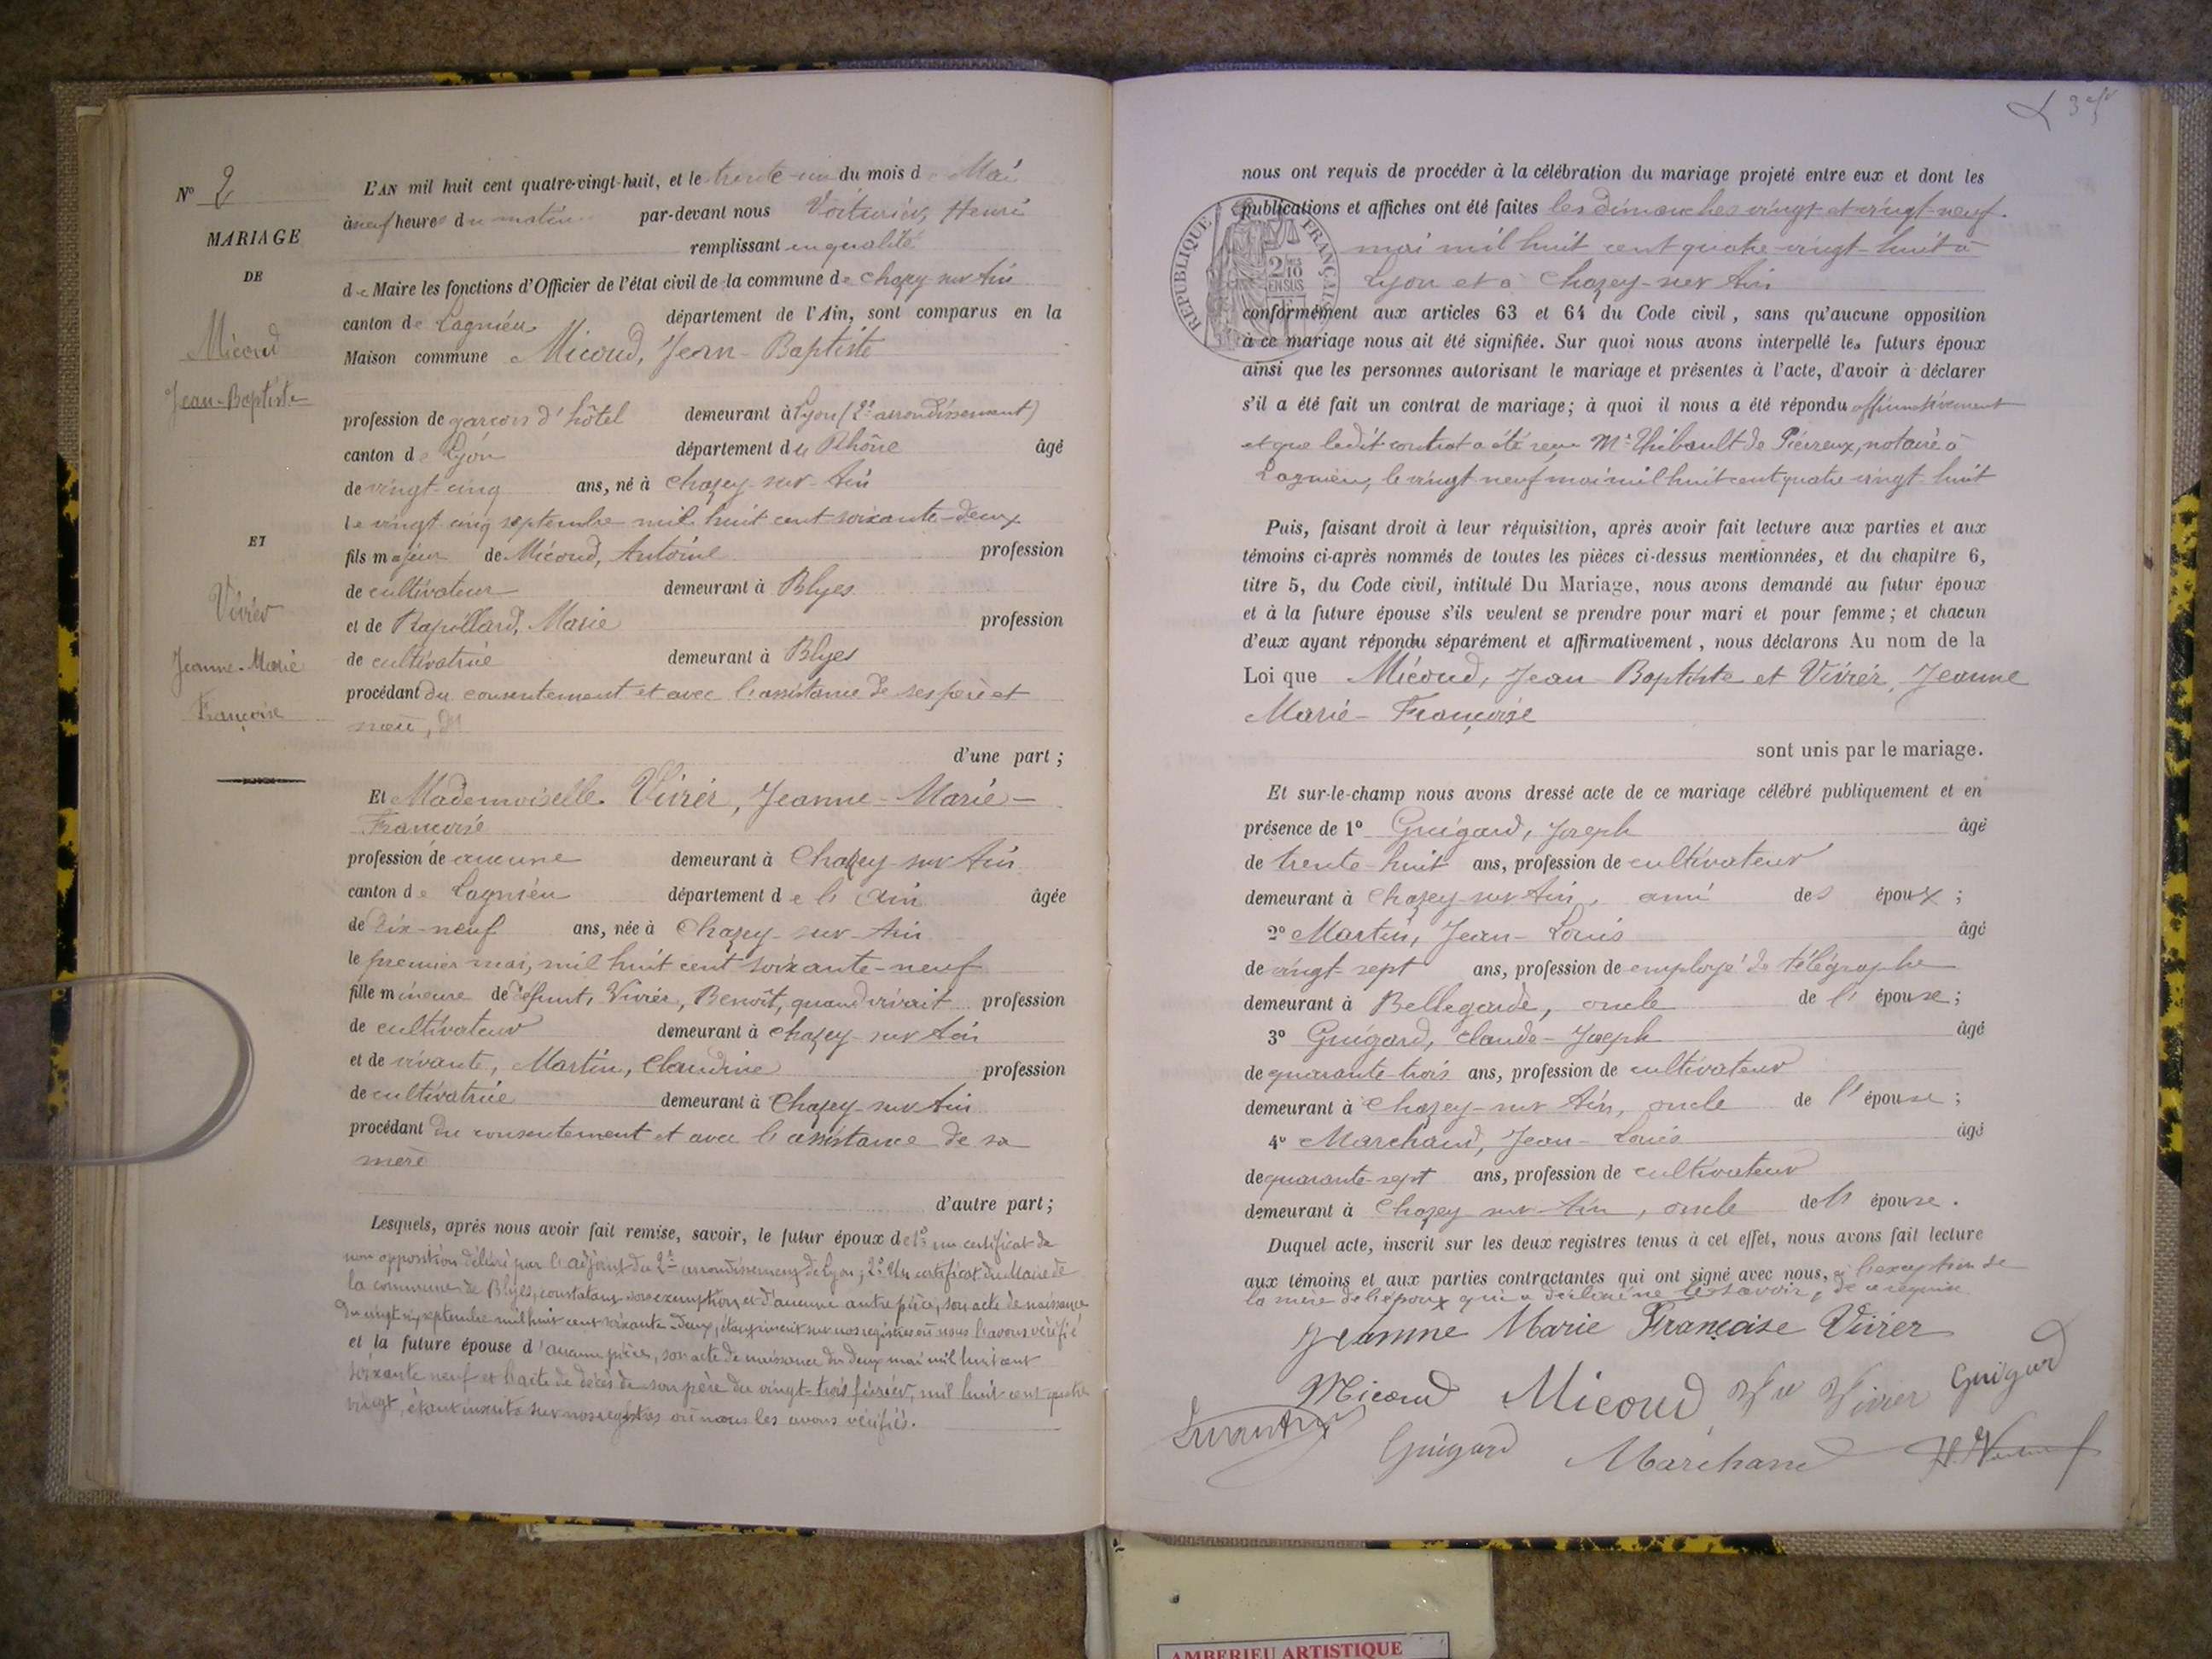 N° 2
MARIAGE
DE
Micoud
Jean-Baptiste
ET
Vivier
Jeanne-Marie
Françoise
L'AN mil huit cent quatre-vingt-huit, et le trente-un du mois de Mai
à neuf heures du matin par-devant nous Voiturier, Henri
remplissant en qualité
de Maire les fonctions d'Officier de l'état civil de la commune de Chazey-sur-Ain
canton de Lagnieu département de l'Ain, sont comparus en la
Maison commune Micoud, Jean-Baptiste
profession de garçon d'hôtel demeurant à Lyon (2e arrondissement)
canton de Lyon département du Rhône âgé
de vingt-cinq ans, né à Chazey-sur-Ain
le vingt-cinq septembre mil huit cent soixante-deux
fils majeur de Micoud, Antoine profession
de cultivateur demeurant à Blyes
et de Rapillard, Marie profession
de cultivatrice demeurant à Blyes
procédant du consentement et avec l'assistance de ses père et
mère,
d'une part ;
Et Mademoiselle Vivier, Jeanne-Marie-
Françoise
profession de aucune demeurant à Chazey-sur-Ain
canton de Lagnieu département de l'Ain âgée
de dix-neuf ans, née à Chazey-sur-Ain
le premier mai, mil huit cent soixante-neuf
fille mineure de défunt, Vivier, Benoît, quand vivait profession
de cultivateur demeurant à Chazey-sur-Ain
et de vivante, Martin, Claudine profession
de cultivatrice demeurant à Chazey-sur-Ain
procédant du consentement et avec l'assistance de sa
mère
d'autre part ;
Lesquels, après nous avoir fait remise, savoir, le futur époux de 1° un certificat de
non opposition délivré par l'adjoint du 2e arrondissement de Lyon ; 2° Un certificat du Maire de
la commune de Blyes, constatant son exemption et d'aucune autre pièce, son acte de naissance
du vingt-six septembre mil huit cent soixante-deux, étant inscrit sur nos registres où nous l'avons vérifié
et la future épouse d'aucune pièce, son acte de naissance du deux mai mil huit cent
soixante neuf et l'acte de décès de son père du vingt-trois février, mil huit cent quatre
vingt, étant inscrits sur nos registres où nous les avons vérifiés.
nous ont requis de procéder à la célébration du mariage projeté entre eux et dont les
publications et affiches ont été faites les dimanches vingt et vingt-neuf
mai mil huit cent quatre-vingt-huit à
Lyon et à Chazey-sur-Ain
RÉPUBLIQUE FRANÇAISE
2/10 EN SUS
conformément aux articles 63 et 64 du Code civil, sans qu'aucune opposition
à ce mariage nous ait été signifiée. Sur quoi nous avons interpellé les futurs époux
ainsi que les personnes autorisant le mariage et présentes à l'acte, d'avoir à déclarer
s'il a été fait un contrat de mariage; à quoi il nous a été répondu affirmativement
et que ledit contrat a été reçu Me Thibault de Pierreux, notaire à
Lagnieu, le vingt neuf mai mil huit cent quatre vingt-huit
Puis, faisant droit à leur réquisition, après avoir fait lecture aux parties et aux
témoins ci-après nommés de toutes les pièces ci-dessus mentionnées, et du chapitre 6,
titre 5, du Code civil, intitulé Du Mariage, nous avons demandé au futur époux
et à la future épouse s'ils veulent se prendre pour mari et pour femme; et chacun
d'eux ayant répondu séparément et affirmativement, nous déclarons Au nom de la
Loi que Micoud, Jean Baptiste et Vivier, Jeanne
Marie-Françoise
sont unis par le mariage.
Et sur-le-champ nous avons dressé acte de ce mariage célébré publiquement et en
présence de 1° Guigard, Joseph âgé
de trente-huit ans, profession de cultivateur
demeurant à Chazey-sur-Ain, ami des époux ;
2° Martin, Jean-Louis âgé
de vingt-sept ans, profession de employé de télégraphe
demeurant à Bellegarde, oncle de l'épouse ;
3° Guigard, Claude-Joseph âgé
de quarante-trois ans, profession de cultivateur
demeurant à Chazey-sur-Ain, oncle de l'épouse ;
4° Marchand, Jean-Louis âgé
de quarante-sept ans, profession de cultivateur
demeurant à Chazey sur-Ain, oncle de l'épouse.
Duquel acte, inscrit sur les deux registres tenus à cet effet, nous avons fait lecture
aux témoins et aux parties contractantes qui ont signé avec nous, à l'exception de
la mère de l'époux qui a déclaré ne le savoir, de ce requise
Jeanne Marie Françoise Vivier
Micoud Micoud Vve Vivier Guigard
Guigard Marchand
AMBERIEU ARTISTIQUE